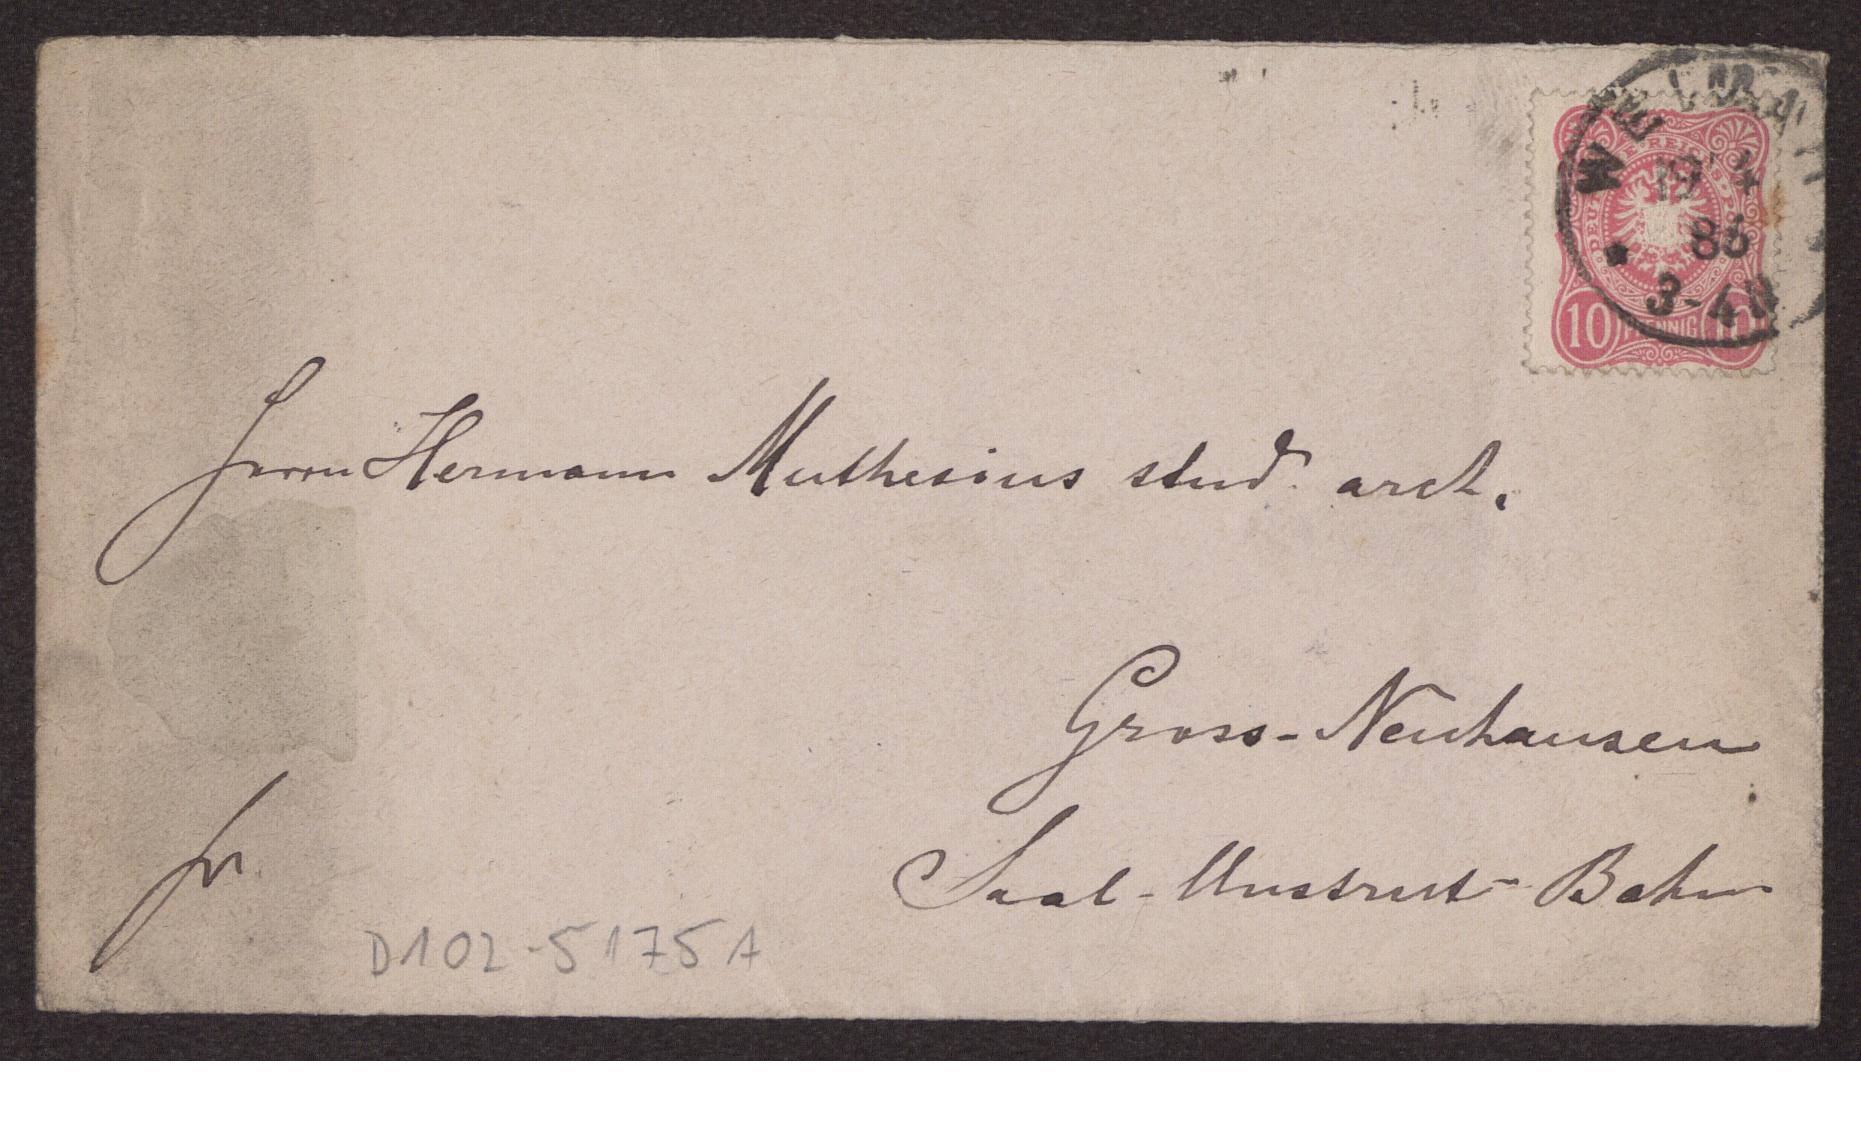 WEIMAR
19 4
86
3-4 N
DEUTSCHE REICHS-POST
10 PFENNIG 10
Herrn Hermann Muthesius stud. arch.
Gross-Neuhausen
Saal-Unstrut-Bahn
fr.
D102-5175A